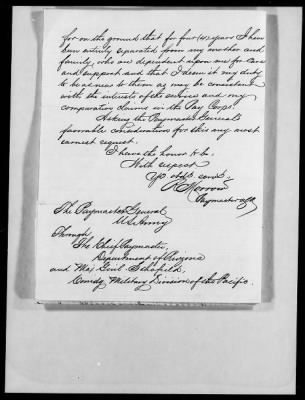 for on the ground that for four (4) years I have
been entirely separated from my mother and
family, who are dependent upon me for care
and support and that I deem it my duty
to be as near to them as may be consistent
with the interests of the service and my
comparative claims in the Pay Corps.
Asking the Paymaster General's
favorable consideration for this my most
earnest request.
I have the honor to be.
With respect
Yr obdt servt
Morrow
Paymaster USA
The Paymaster General
U.S. Army
Through
The Chief Paymaster,
Department of Arizona
and Maj Genl. Schofield,
Comdg Military Division of the Pacific.